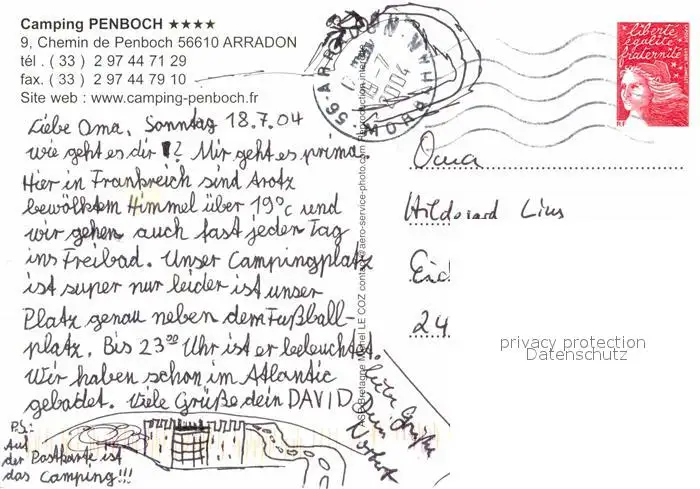 Camping PENBOCH ★★★★
9, Chemin de Penboch 56610 ARRADON
tél . ( 33 ) 2 97 44 71 29
fax. ( 33 ) 2 97 44 79 10
Site web : www.camping-penboch.fr
Liebe Oma, Sonntag 18.7.04
wie geht es dir ? Mir geht es prima.
Hier in Frankreich sind trotz
bewölktem Himmel über 19°C und
wir gehen auch fast jeden Tag
ins Freibad. Unser Campingplatz
ist super nur leider ist unser
Platz genau neben dem Fußball-
platz. Bis 23⁰⁰ Uhr ist er beleuchtet.
Wir haben schon im Atlantic
gebadet. Viele Grüße dein DAVID
P.S:
Auf
der Postkarte ist
das Camping!!!
Grüße
Norbert
56-ARRADON
MORBIHAN
2004
liberté
égalité
fraternité
Oma
Hildegard
24
privacy protection
Datenschutz